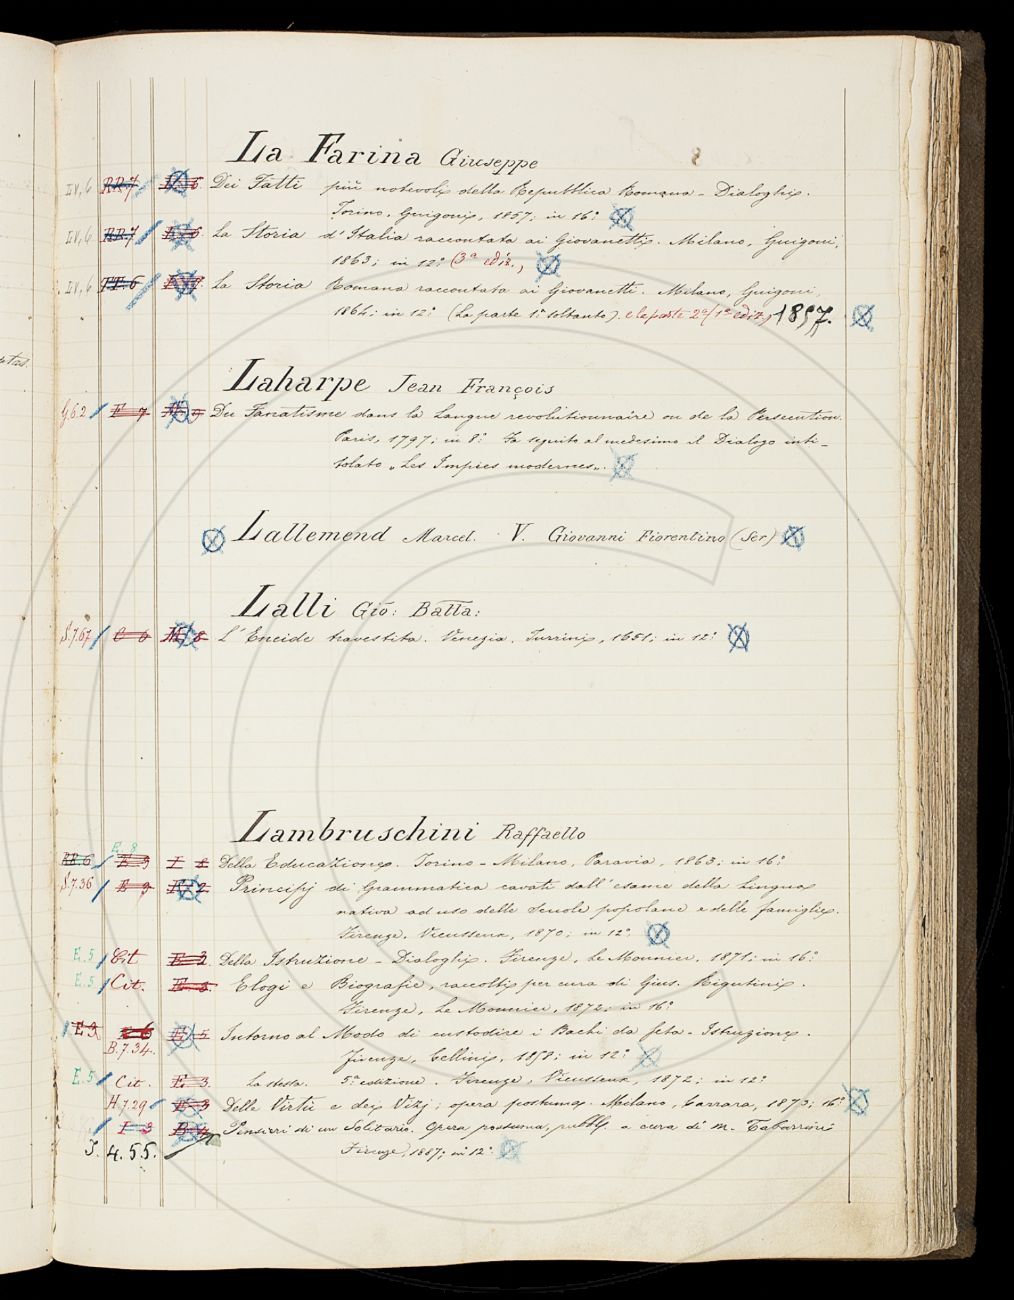 La Farina Giuseppe
IV, 6 RR.7 Dei Fatti più notevoli della Repubblica Romana - Dialoghi.
Torino, Guigoni, 1857; in 16.°
IV, 6 RR.7 La Storia d'Italia raccontata ai Giovanetti. Milano, Guigoni,
1863; in 12.° (3ª ediz.,
IV, 6 La Storia Romana raccontata ai Giovanetti. Milano, Guigoni,
1864; in 12.° (La parte 1.ª soltanto). e la parte 2ª (1ª ediz.) 1857.
Laharpe Jean François
G.6.2 F 7 Du Fanatisme dans la Langue revolutionnaire ou de la Persecution.
Paris, 1797; in 8.° Fa seguito al medesimo il Dialogo inti-
tolato „Les Impies modernes„.
Lallemend Marcel. V. Giovanni Fiorentino (Ser)
Lalli Gio: Batta:
S.7.67 C 6 L'Eneide travestita. Venezia, Turrini, 1651; in 12.°
Lambruschini Raffaello
E. 8
RR 6 E 3 Della Educazione. Torino - Milano, Paravia, 1863; in 16.°
S.7.36 E 3 Principj di Grammatica cavati dall'esame della Lingua
nativa ad uso delle Scuole popolane e delle famiglie.
Firenze, Vieusseux, 1870; in 12.°
E. 5 Cit E 2 Della Istruzione - Dialoghi. Firenze, Le Monnier, 1871; in 16.°
E. 5 Cit. Elogi e Biografie, raccolti per cura di Gius. Rigutini.
Firenze, Le Monnier, 1872; in 16.°
E 3 Intorno al Modo di custodire i Bachi da seta - Istruzione.
B.7.34. Firenze, Cellini, 1858; in 12.°
E. 5 Cit. E. 3. La stessa. 5.ª edizione. Firenze, Vieusseux, 1872; in 12.°
H.7.29 E 3 Delle Virtù e dei Vizj; opera postuma. Milano, Carrara, 1873; 16.°
I 3 Pensieri di un Solitario. Opera postuma, pubbl. a cura di M. Tabarrini
I. 4. 55. Firenze, 1887; in 12.°